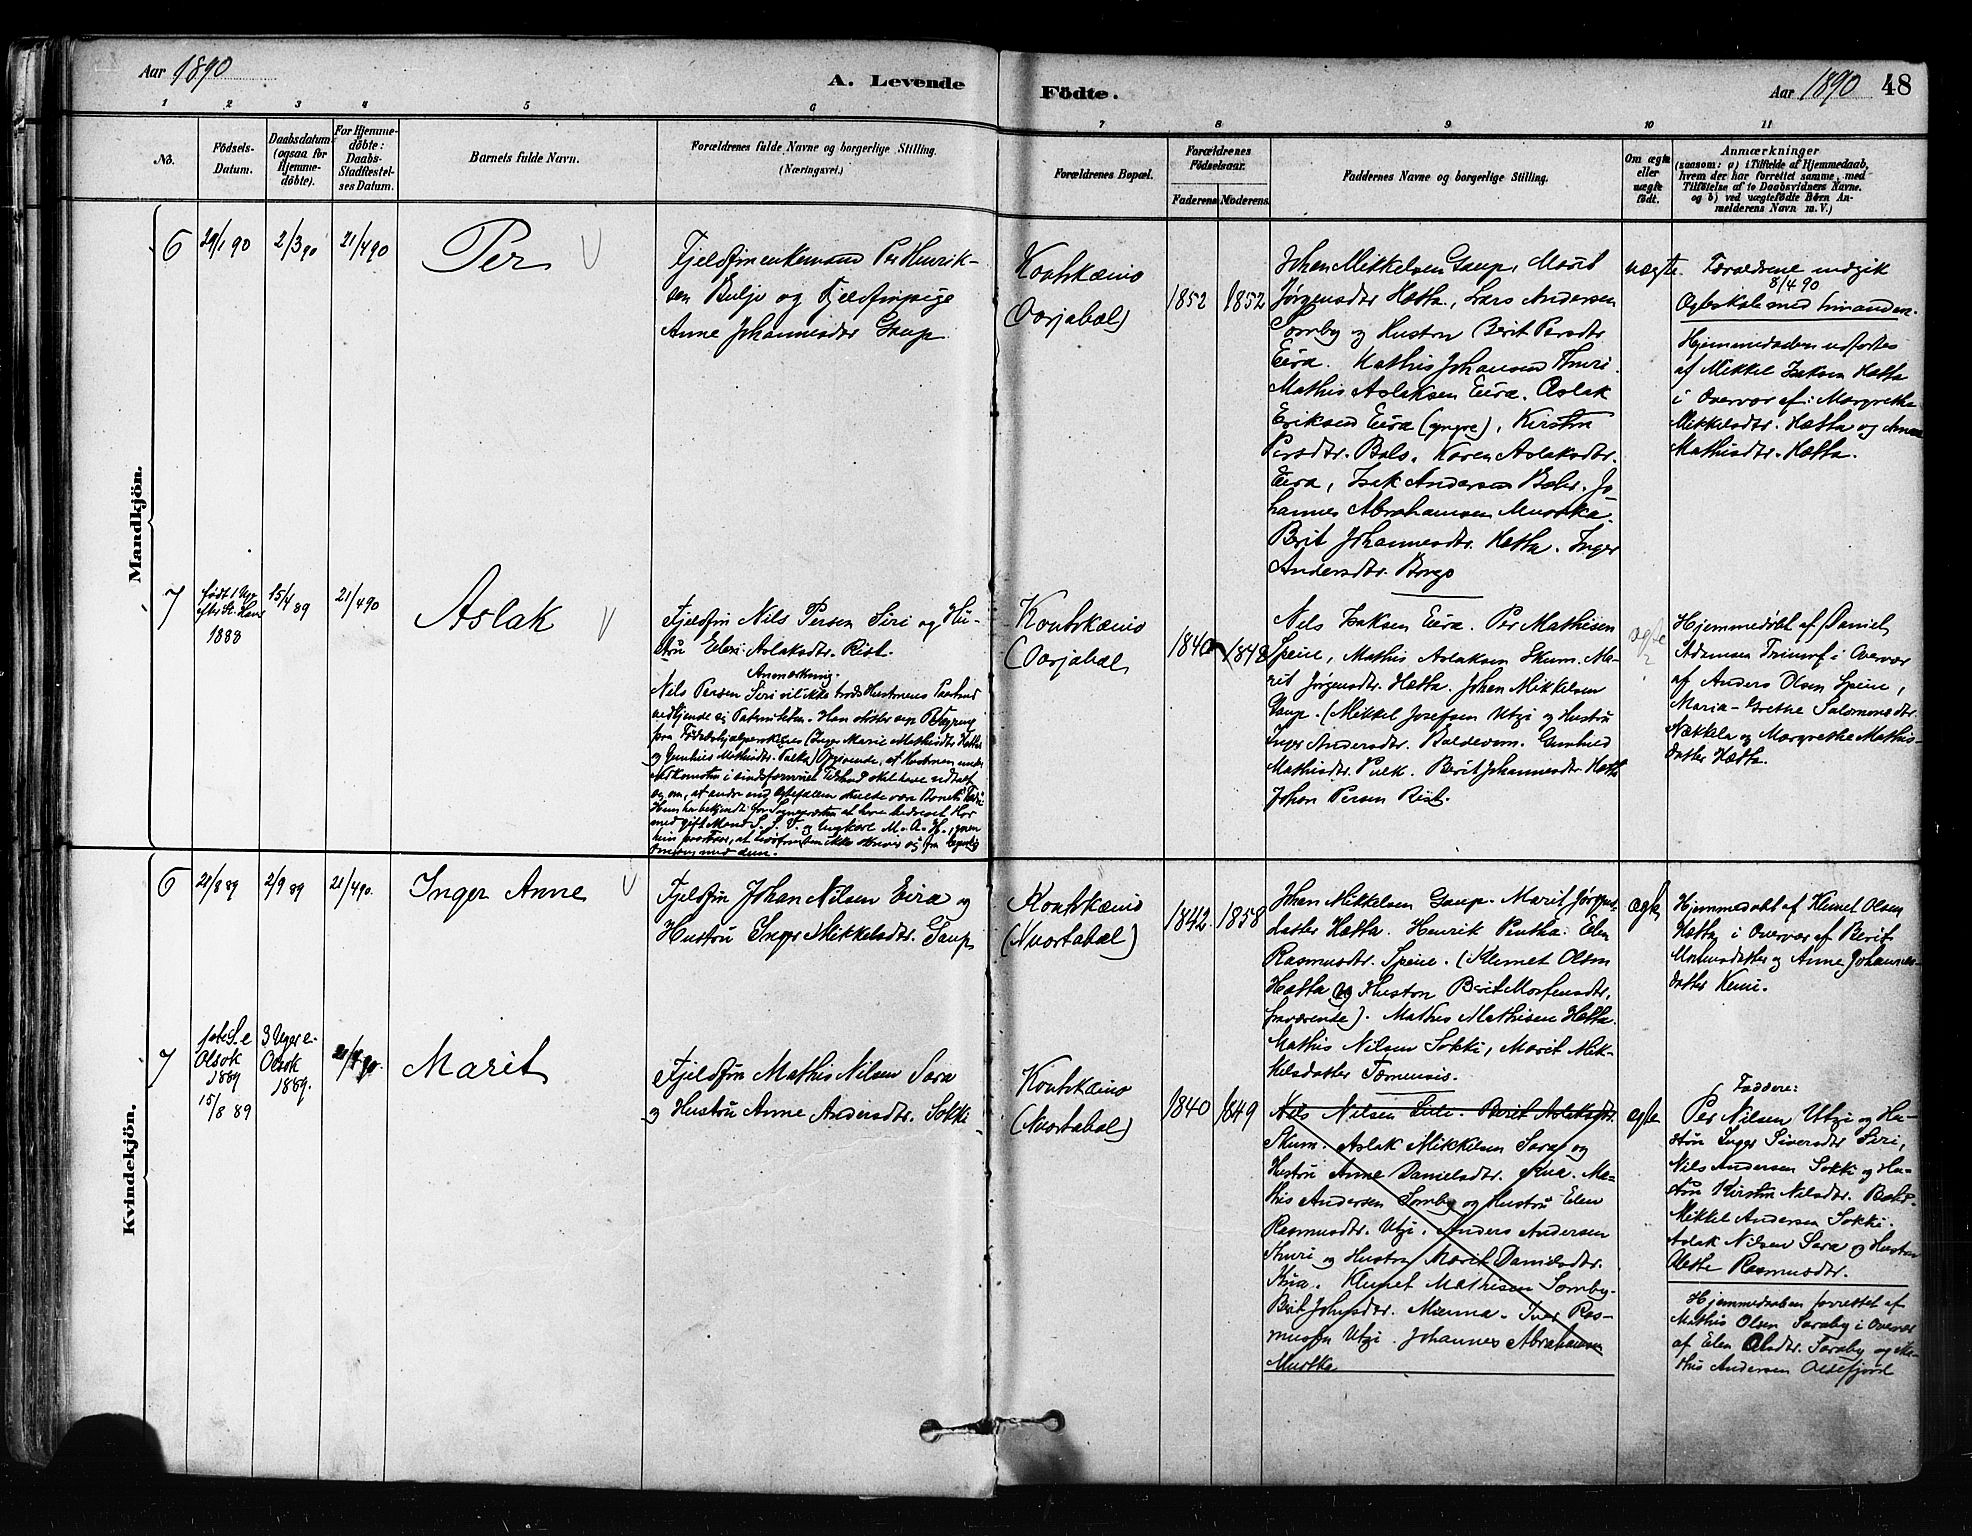 Aar 1890
A. Levende
Födte.
Aar 1890
48
1 2 3 4 5 6 7 8 9 10 11
No.
Födsels-
Datum.
Daabsdatum
(ogsaa for
Hjemme-
döbte).
For Hjemme-
döbte:
Daabs-
Stadfæstel-
ses Datum.
Barnets fulde Navn.
Forældrenes fulde Navne og borgerlige Stilling.
(Næringsvei.)
Forældrenes Bopæl.
Forældrenes
Födselsaar.
Faderens Moderens
Faddernes Navne og borgerlige Stilling.
Om ægte
eller
uægte
födt.
Anmærkninger
(saasom: a) i Tilfælde af Hjemmedaab,
hvem der har forrettet samme, med
Tilföielse af to Daabsvidners Navne.
og b) ved uægtefödte Börn An-
melderens Navn m. V.)
Mandkjön.
6
29/1 90
2/3 90
21/4 90
Per
Fjeldfinenkemand Per Henrik-
sen Buljo og Fjeldfinpige
Anne Johannesdtr Gaup
Koutokæino
(Oarjabæl)
1852
1852
Johan Mikkelsen Gaup, Marit
Jørgensdtr Hætta, Lars Andersen
Somby og Hustru Berit Persdtr
Eira. Mathis Johansen Thuri.
Mathis Aslaksen Eira. Aslak
Eriksen Eira (yngre), Kirsten
Persdtr. Bals. Karen Aslaksdtr.
Eira, Isak Andersen Bals. Jo
hannes Abrahamsen Muotka.
Berit Johannesdtr. Hætta. Inger
Andersdtr. Bongo
uægte.
Forældrene indgik
8/4 90
Ægteskab med hinanden.
Hjemmedaaben udførtes
af Mikkel Isaksen Hætta
i Overvær af: Margrethe
Mikkelsdtr. Hætta og Anne
Mathisdtr. Hætta.
7
født 1 Uge
efter St. Hans
1888
15/4 89
21/4 90
Aslak
Fjeldfin Nils Persen Siri og Hu-
stru Elen Aslaksdtr. Rist.
Anmærkning.
Nils Persen Siri vil ikke trods Hustruens Paastand
vedkjende sig Paterniteten. Han støtter sig
fra Fødselshjælperskerne (Inger Marie Mathisdtr Hætta
Koutokæino
(Oarjabæl
1840
1848
Nils Isaksen Eira. Per Mathisen
Speine, Mathis Aslaksen Skum. Ma-
rit Jørgensdtr. Hætta. Johan Mikkelsen
Gaup. (Mikkel Josefsen Utzi og Hustru
Inger Andersdtr. Baldevom. Gunhild
Mathisdtr. Pulk. Berit Johannesdtr. Hætta
Johan Persen Rist.
ægte
?
Hjemmedøbt af Daniel
Adamsen Triumf i Overvær
af Anders Olsen Speine,
Maria-Grethe Salomonsdtr.
Nækkela og Margrethe Mathis-
datter Hætta.
Kvindekjön.
6
21/8 89
2/9 89
21/4 90.
Inger Anne
Fjeldfin Johan Nilsen Eira og
Hustru Inger Mikkelsdtr. Gaup
Koutokæino
(Nuortabæl)
1842
1858
Johan Mikkelsen Gaup. Marit Jørgens-
datter Hætta. Henrik Pentha. Elen
Rasmusdtr. Speine. (Klemet Olsen
Hætta og Hustru Berit Mortensdtr.
fraværende). Mathis Mathisen Hætta.
Mathis Nilsen Sokki, Marit Mik-
kelsdatter Tornensis.
ægte
Hjemmedøbt af Klemet Olsen
Hætta i Overvær af Berit
Mortensdatter og Anne Johannes-
datter Kemi.
7
Olsok
1889
15/8 89
3 Uger e.
Olsok
1889.
21/4 90.
Marit
Fjeldfin Mathis Nilsen Sara
og Hustru Anne Andersdtr. Sokki
Koutokæino
(Nuortabæl)
1840
1849
Nils Nilsen Siri. Berit Aslaksdtr.
Skum. Aslak Mikkelsen Sara og
Hustru Anne Danielsdtr. Kua. Ma-
this Andersen Somby og Hustru Elen
Rasmusdtr. Utzi. Anders Andersen
Thuri og Hustru Marit Danielsdtr.
Kua. Klemet Mathisen Somby.
Berit Johnsdtr. Mienna. Iver Ras-
mussen Utzi. Johannes Abrahamsen
Muotka
ægte
Faddere:
Per Nilsen Utzi og Hu-
stru Inger Siversdtr Siri,
Nils Andersen Sokki og Hu-
stru Kirsten Nilsdtr. Bals.
Mikkel Andersen Sokki.
Aslak Nilsen Sara og Hustru
Rasmusdtr.
Hjemmedaaben forrettet af
Mathis Olsen Saraby i Overvær
af Elen Olsdtr. Saraby og Ma-
this Andersen Oksefjord